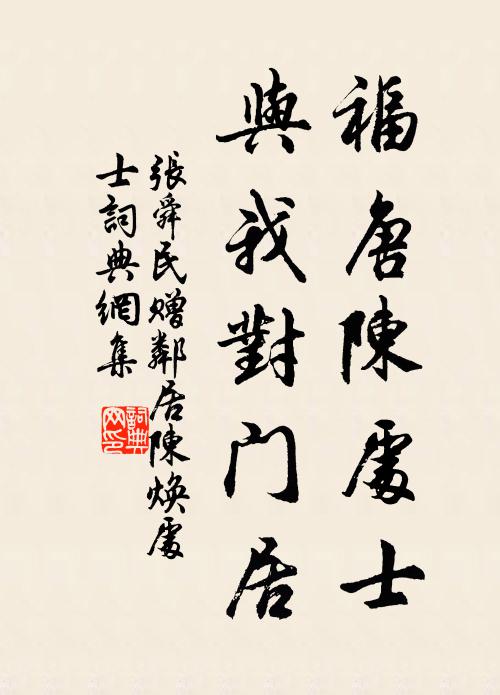 福唐陳處士
與我對門居
張舜民贈鄰居陳煥處
士詞典網集
詞典网印